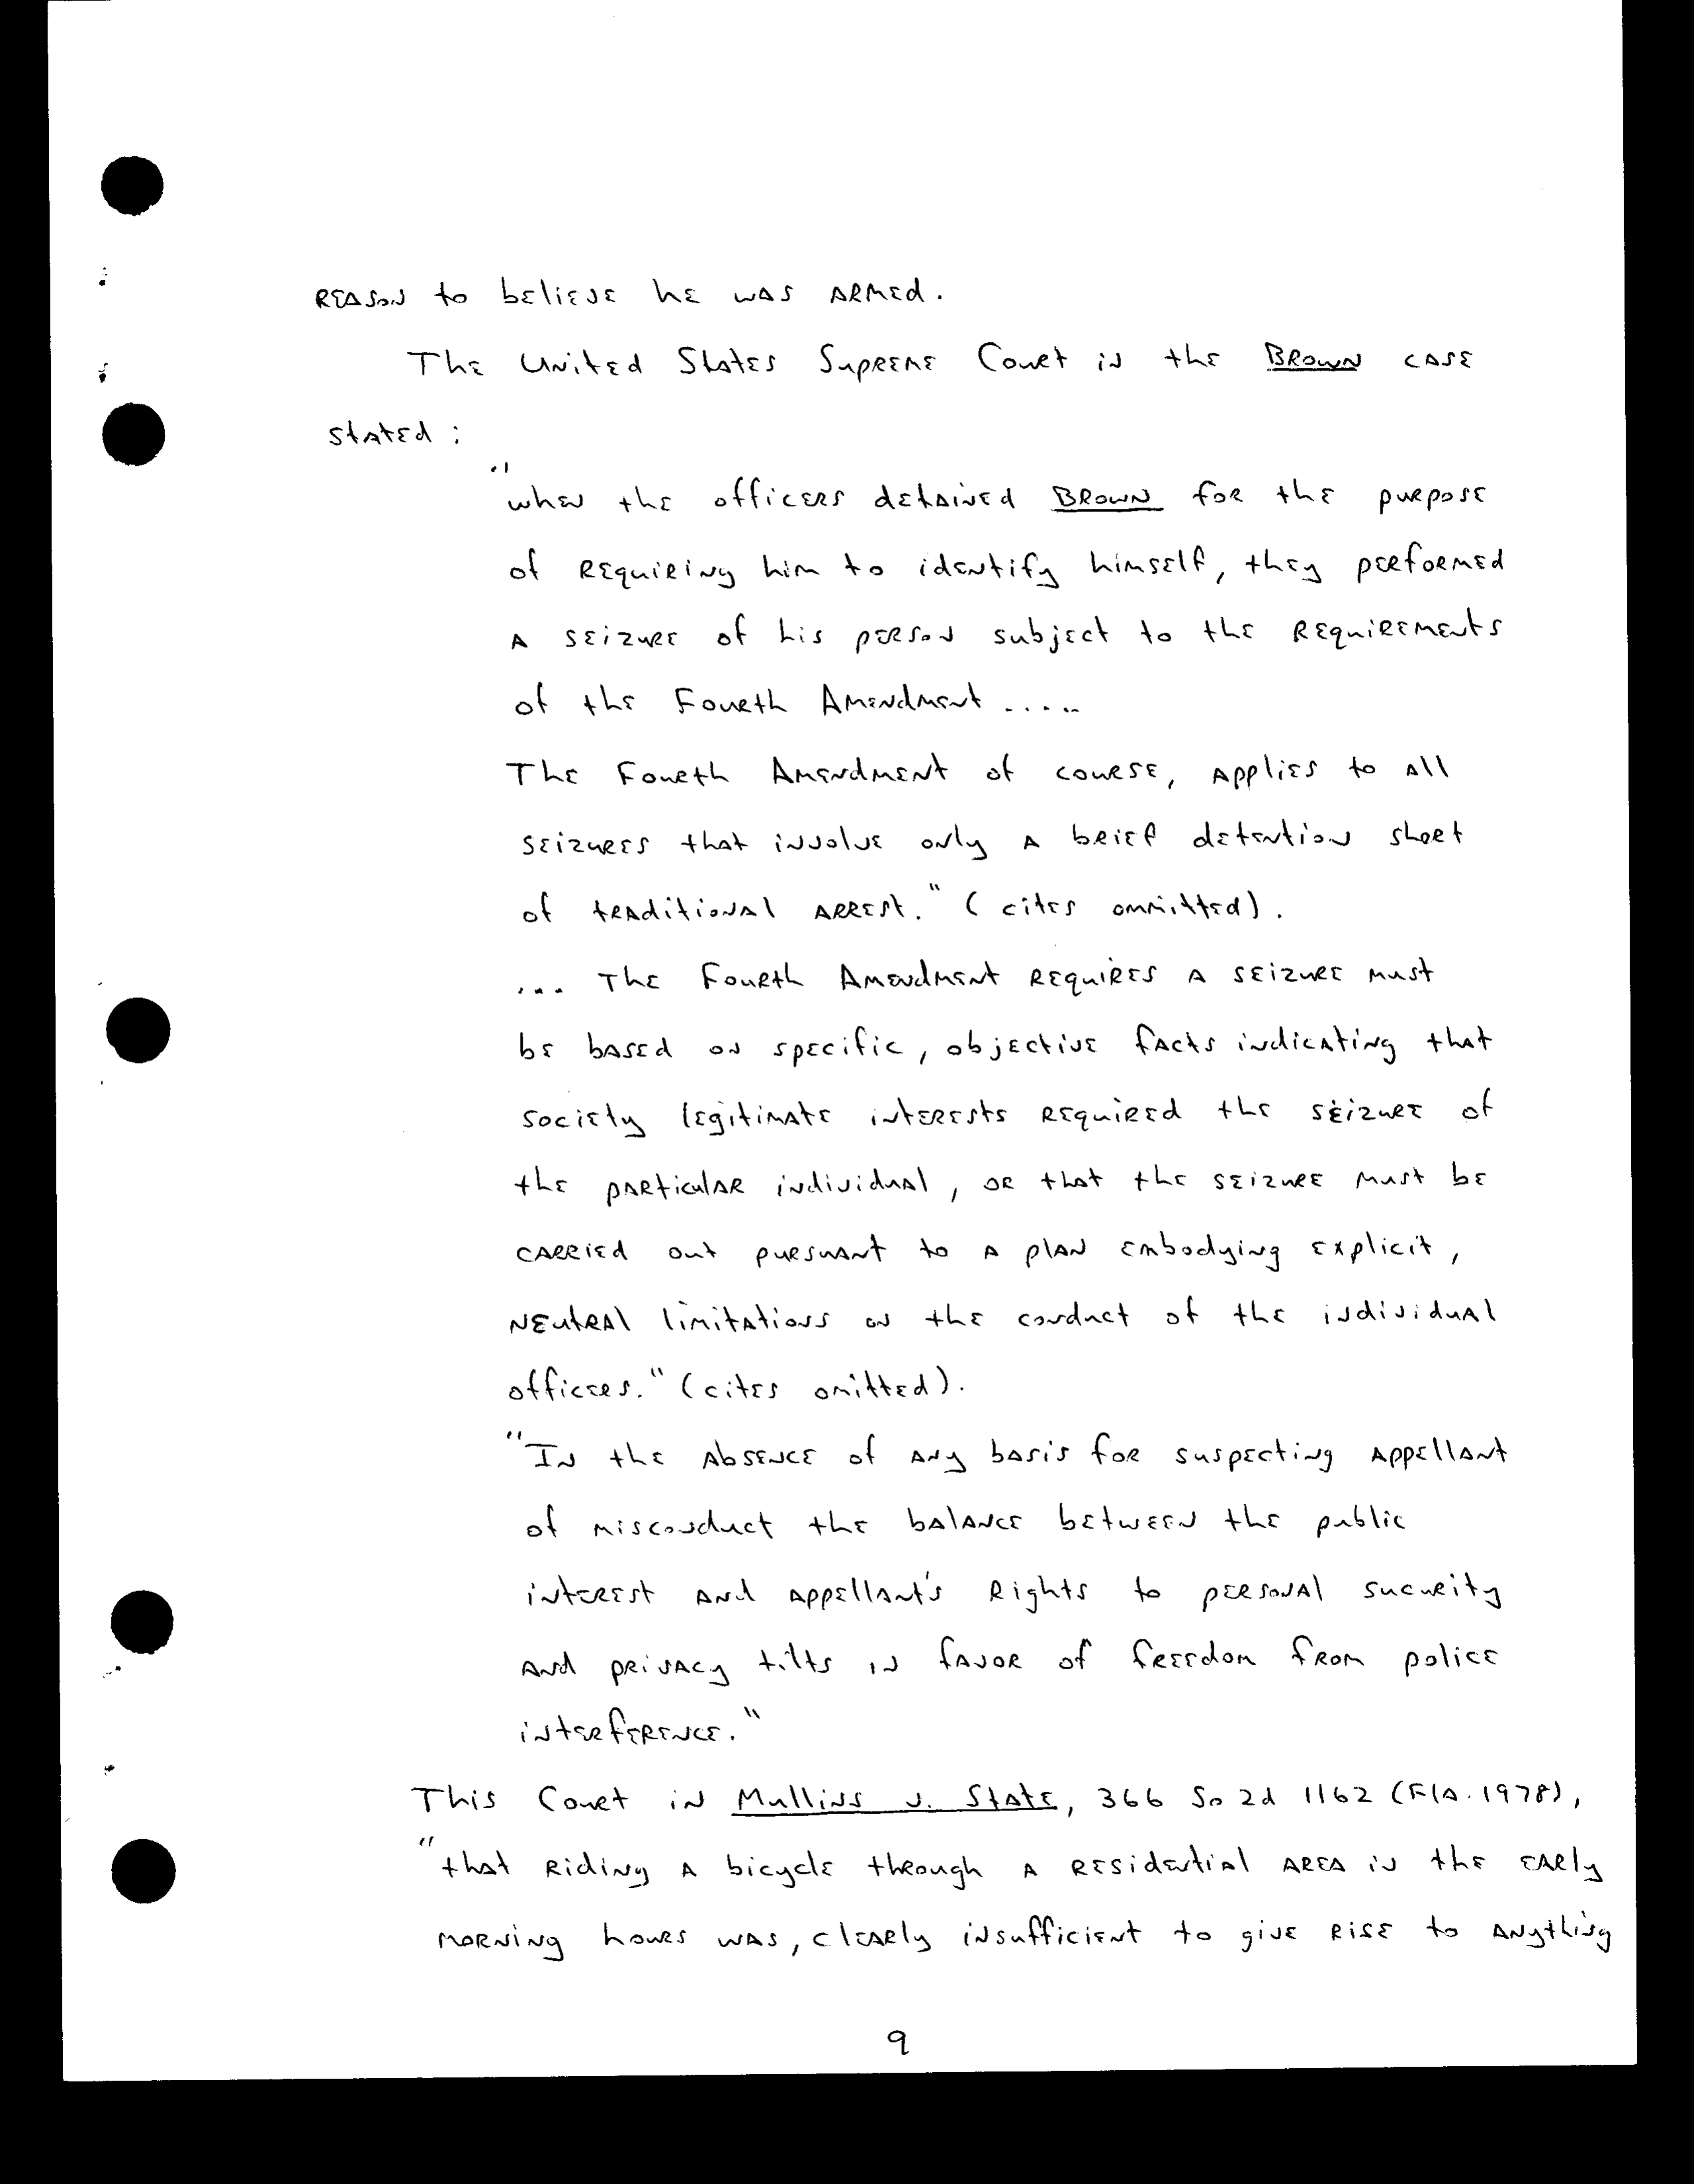 REASON to believe he was ARMED.
The United States Supreme Court in the BROWN case
stated:
"when the officers detained BROWN for the purpose
of requiring him to identify himself, they performed
a seizure of his person subject to the requirements
of the Fourth Amendment .....
The Fourth Amendment of course, applies to all
seizures that involve only a brief detention short
of traditional arrest." (cites ommitted).
... The Fourth Amendment requires a seizure must
be based on specific, objective facts indicating that
society legitimate interests required the seizure of
the particular individual, or that the seizure must be
carried out pursuant to a plan embodying explicit,
neutral limitations on the conduct of the individual
officers." (cites omitted).
"In the absence of any basis for suspecting appellant
of misconduct the balance between the public
interest and appellant's rights to personal sucurity
and privacy tilts in favor of freedom from police
interference."
This Court in Mullins v. State, 366 So 2d 1162 (Fla. 1978),
"that riding a bicycle through a residential area in the early
morning hours was, clearly insufficient to give rise to anything
9